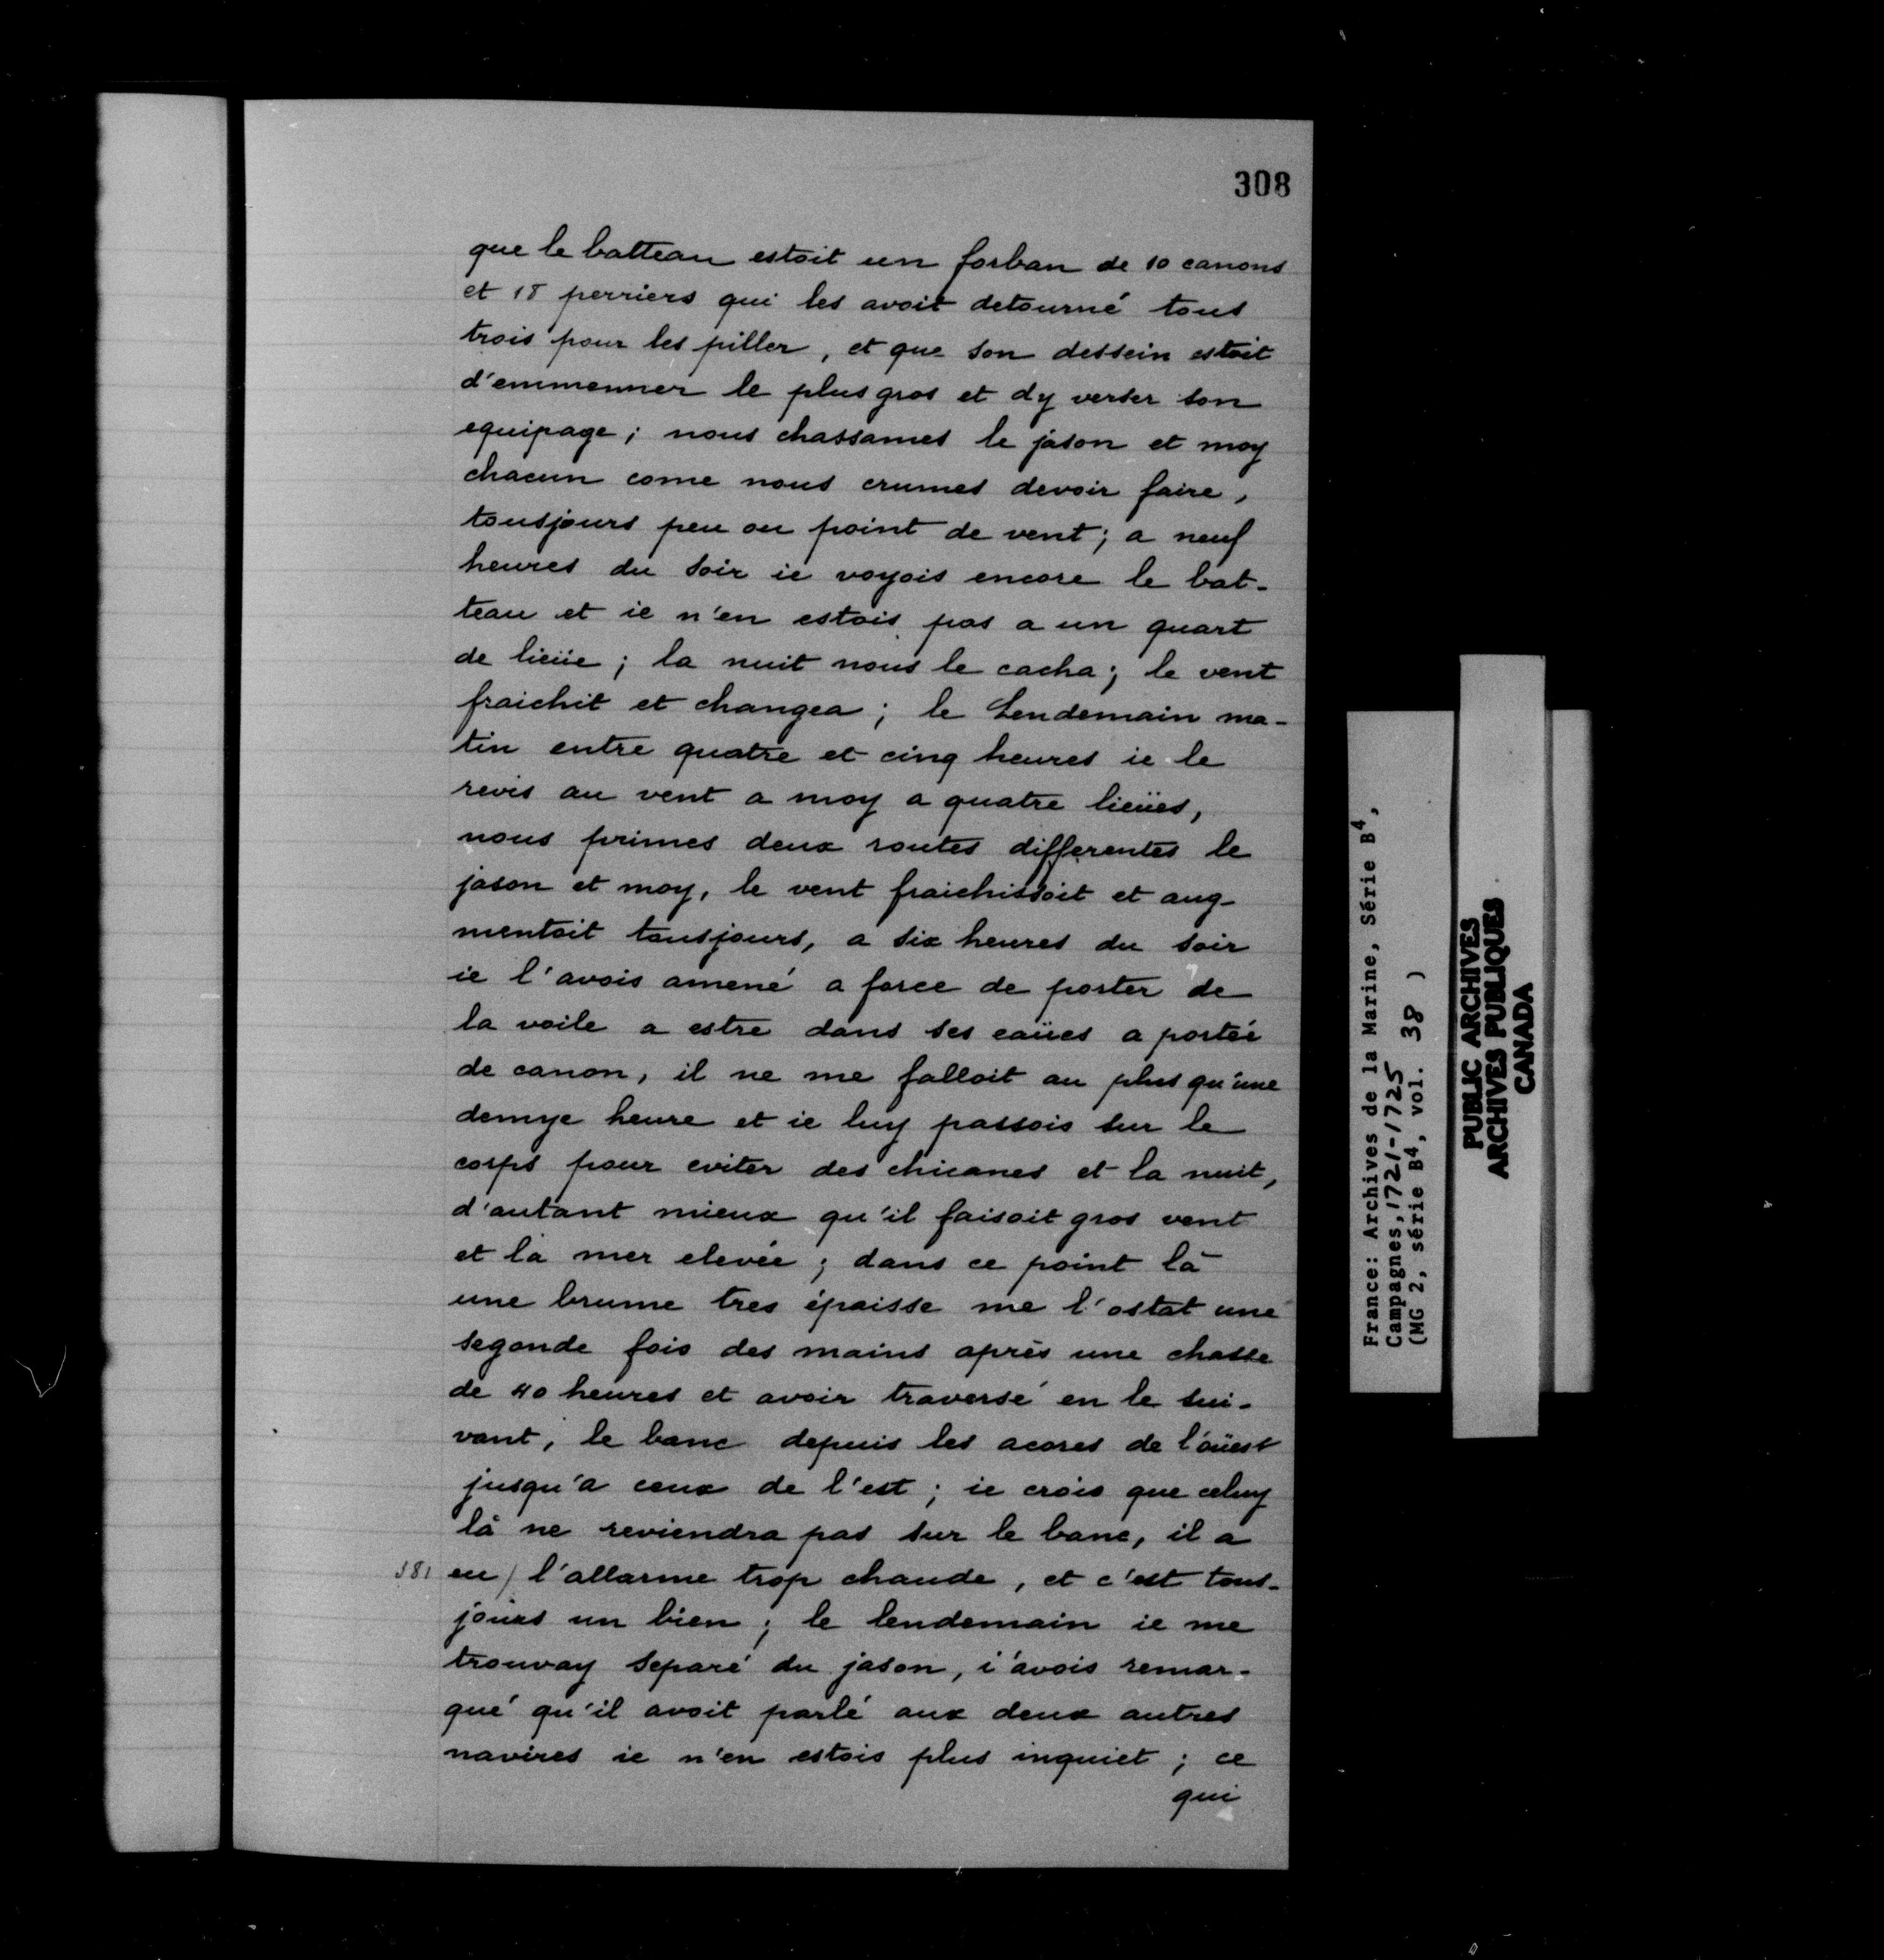 308
que le batteau estoit un forban de 10 canons
et 18 perriers qui les avoit detourné tous
trois pour les piller, et que son dessein estoit
d'emmenner le plus gros et dy verser son
equipage; nous chassames le jason et moy
chacun come nous crumes devoir faire,
tousjours peu ou point de vent; a neuf
heures du soir ie voyois encore le bat-
teau et ie n'en estois pas a un quart
de lieüe; la nuit nous le cacha; le vent
fraichit et changea; le Lendemain ma-
tin entre quatre et cinq heures ie le
revis au vent a moy a quatre lieües,
nous primes deux routes differentes le
jason et moy, le vent fraichissoit et aug-
mentoit tousjours, a six heures du soir
ie l'avois amené a force de porter de
la voile a estre dans ses eaües a portée
de canon, il ne me falloit au plus qu'une
demye heure et ie luy passois sur le
corps pour eviter des chicanes et la nuit,
d'autant mieux qu'il faisoit gros vent
et la mer elevée; dans ce point là
une brume tres épaisse me l'ostat une
segonde fois des mains après une chasse
de 40 heures et avoir traversé en le sui-
vant, le banc depuis les acores de l'oüest
jusqu'a ceux de l'est; ie crois que celuy
là ne reviendra pas sur le banc, il a
181 eu / l'allarme trop chaude, et c'est tous-
jours un bien; le lendemain ie me
trouvay separé du jason, i'avois remar-
qué qu'il avoit parlé aux deux autres
navires ie n'en estois plus inquiet; ce
qui
France: Archives de la Marine, Série B4,
Campagnes, 1721-1725
(MG 2, série B4, vol. 38 )
PUBLIC ARCHIVES
ARCHIVES PUBLIQUES
CANADA